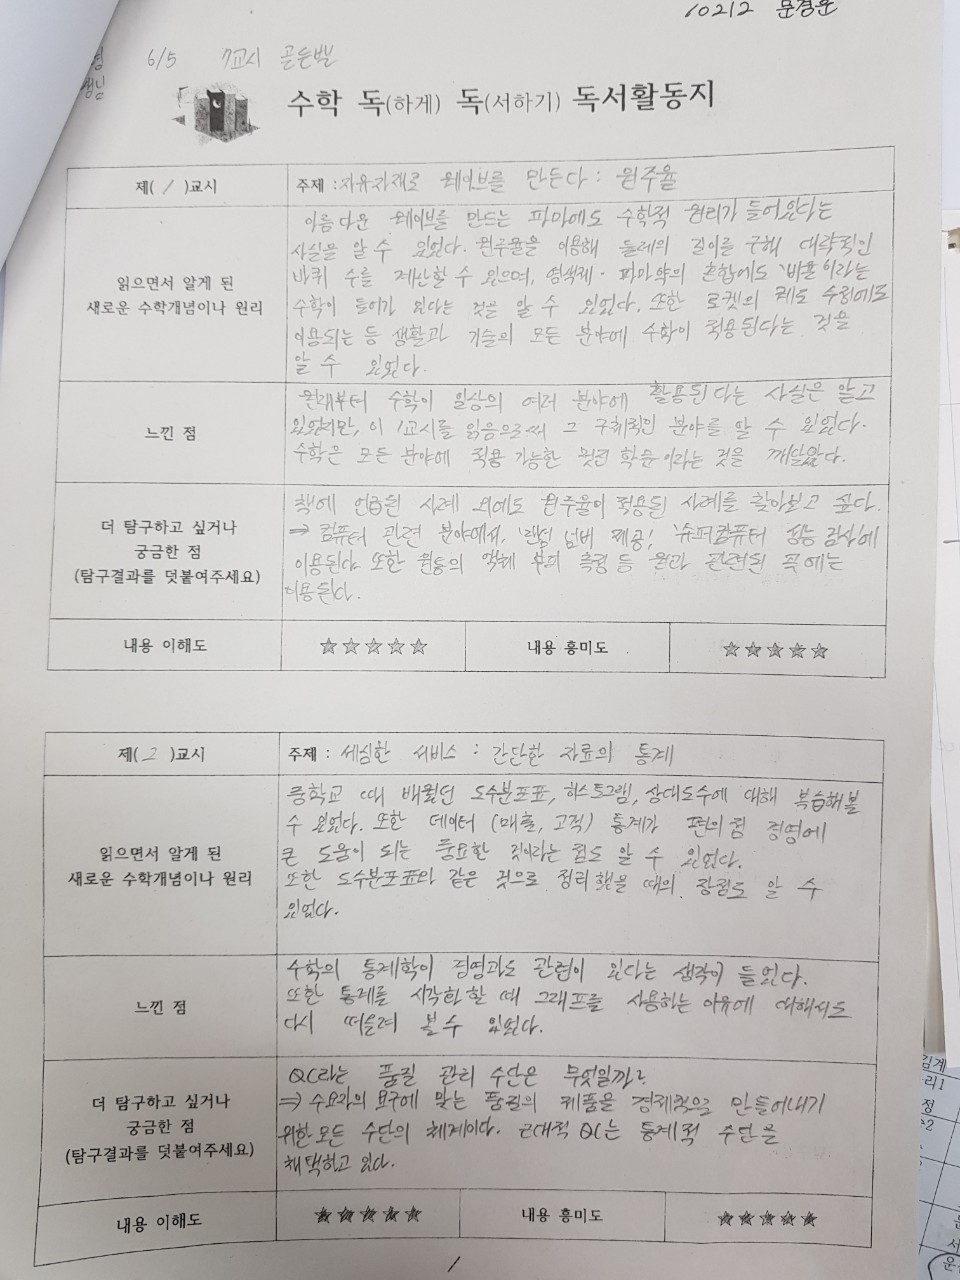 10212 문경운
6/5 7교시 골든벨
수학 독(하게) 독(서하기) 독서활동지
제( 1 )교시
주제 : 자유자재로 웨이브를 만든다 : 원주율
읽으면서 알게 된
새로운 수학개념이나 원리
아름다운 웨이브를 만드는 파마에도 수학적 원리가 들어있다는
사실을 알 수 있었다. 원주율을 이용해 둘레의 길이를 구해 대략적인
바퀴 수를 계산할 수 있으며, 염색제·파마약의 혼합에도 '비율'이라는
수학이 들어가 있다는 것을 알 수 있었다. 또한 로켓의 궤도 수정에도
이용되는 등 생활과 기술의 모든 분야에 수학이 적용된다는 것을
알 수 있었다.
느낀 점
원래부터 수학이 일상의 여러 분야에 활용된다는 사실은 알고
있었지만, 이 1교시를 읽음으로써 그 구체적인 분야를 알 수 있었다.
수학은 모든 분야에 적용 가능한 멋진 학문이라는 것을 깨달았다.
더 탐구하고 싶거나
궁금한 점
(탐구결과를 덧붙여주세요)
책에 언급된 사례 외에도 원주율이 적용된 사례를 찾아보고 싶다.
⇒ 컴퓨터 관련 분야에서, '랜덤 넘버 제공', '슈퍼컴퓨터 성능 검사'에
이용된다. 또한 원통의 액체 부피 측정 등 원과 관련된 곳에는
이용된다.
내용 이해도 ☆☆☆☆☆ 내용 흥미도 ☆☆☆☆☆
제( 2 )교시
주제 : 세심한 서비스 : 간단한 자료의 통계
읽으면서 알게 된
새로운 수학개념이나 원리
중학교 때 배웠던 도수분포표, 히스토그램, 상대도수에 대해 복습해볼
수 있었다. 또한 데이터 (매출, 고객) 통계가 편의점 경영에
큰 도움이 되는 중요한 것이라는 점도 알 수 있었다.
또한 도수분포표와 같은 것으로 정리했을 때의 장점도 알 수
있었다.
느낀 점
수학의 통계학이 경영과도 관련이 있다는 생각이 들었다.
또한 통계를 시각화할 때 그래프를 사용하는 이유에 대해서도
다시 떠올려 볼 수 있었다.
더 탐구하고 싶거나
궁금한 점
(탐구결과를 덧붙여주세요)
QC라는 품질 관리 수단은 무엇일까?
⇒ 수요자의 요구에 맞는 품질의 제품을 경제적으로 만들어내기
위한 모든 수단의 체계이다. 근대적 QC는 통계적 수단을
채택하고 있다.
내용 이해도 ★★★★★ 내용 흥미도 ★★★★★